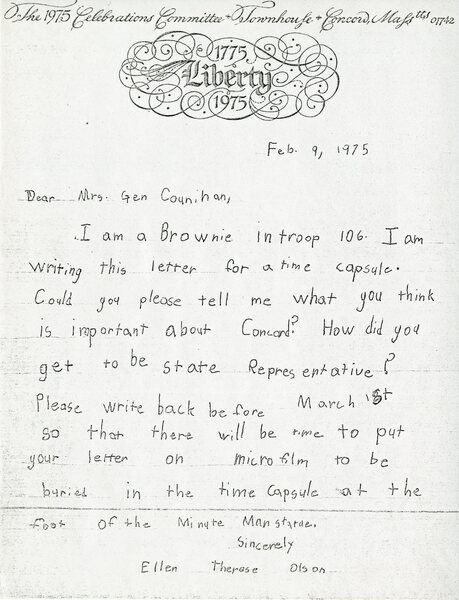 The 1975 Celebrations Committee + Townhouse + Concord, Masstts 01742
1775
Liberty
1975
Feb. 9, 1975
Dear Mrs. Gen Counihan,
I am a Brownie in troop 106. I am
writing this letter for a time capsule.
Could you please tell me what you think
is important about Concord? How did you
get to be state Representative?
Please write back before March 1st
so that there will be time to put
your letter on microfilm to be
buried in the time capsule at the
foot of the Minute Man statue.
Sincerely
Ellen Therese Olson